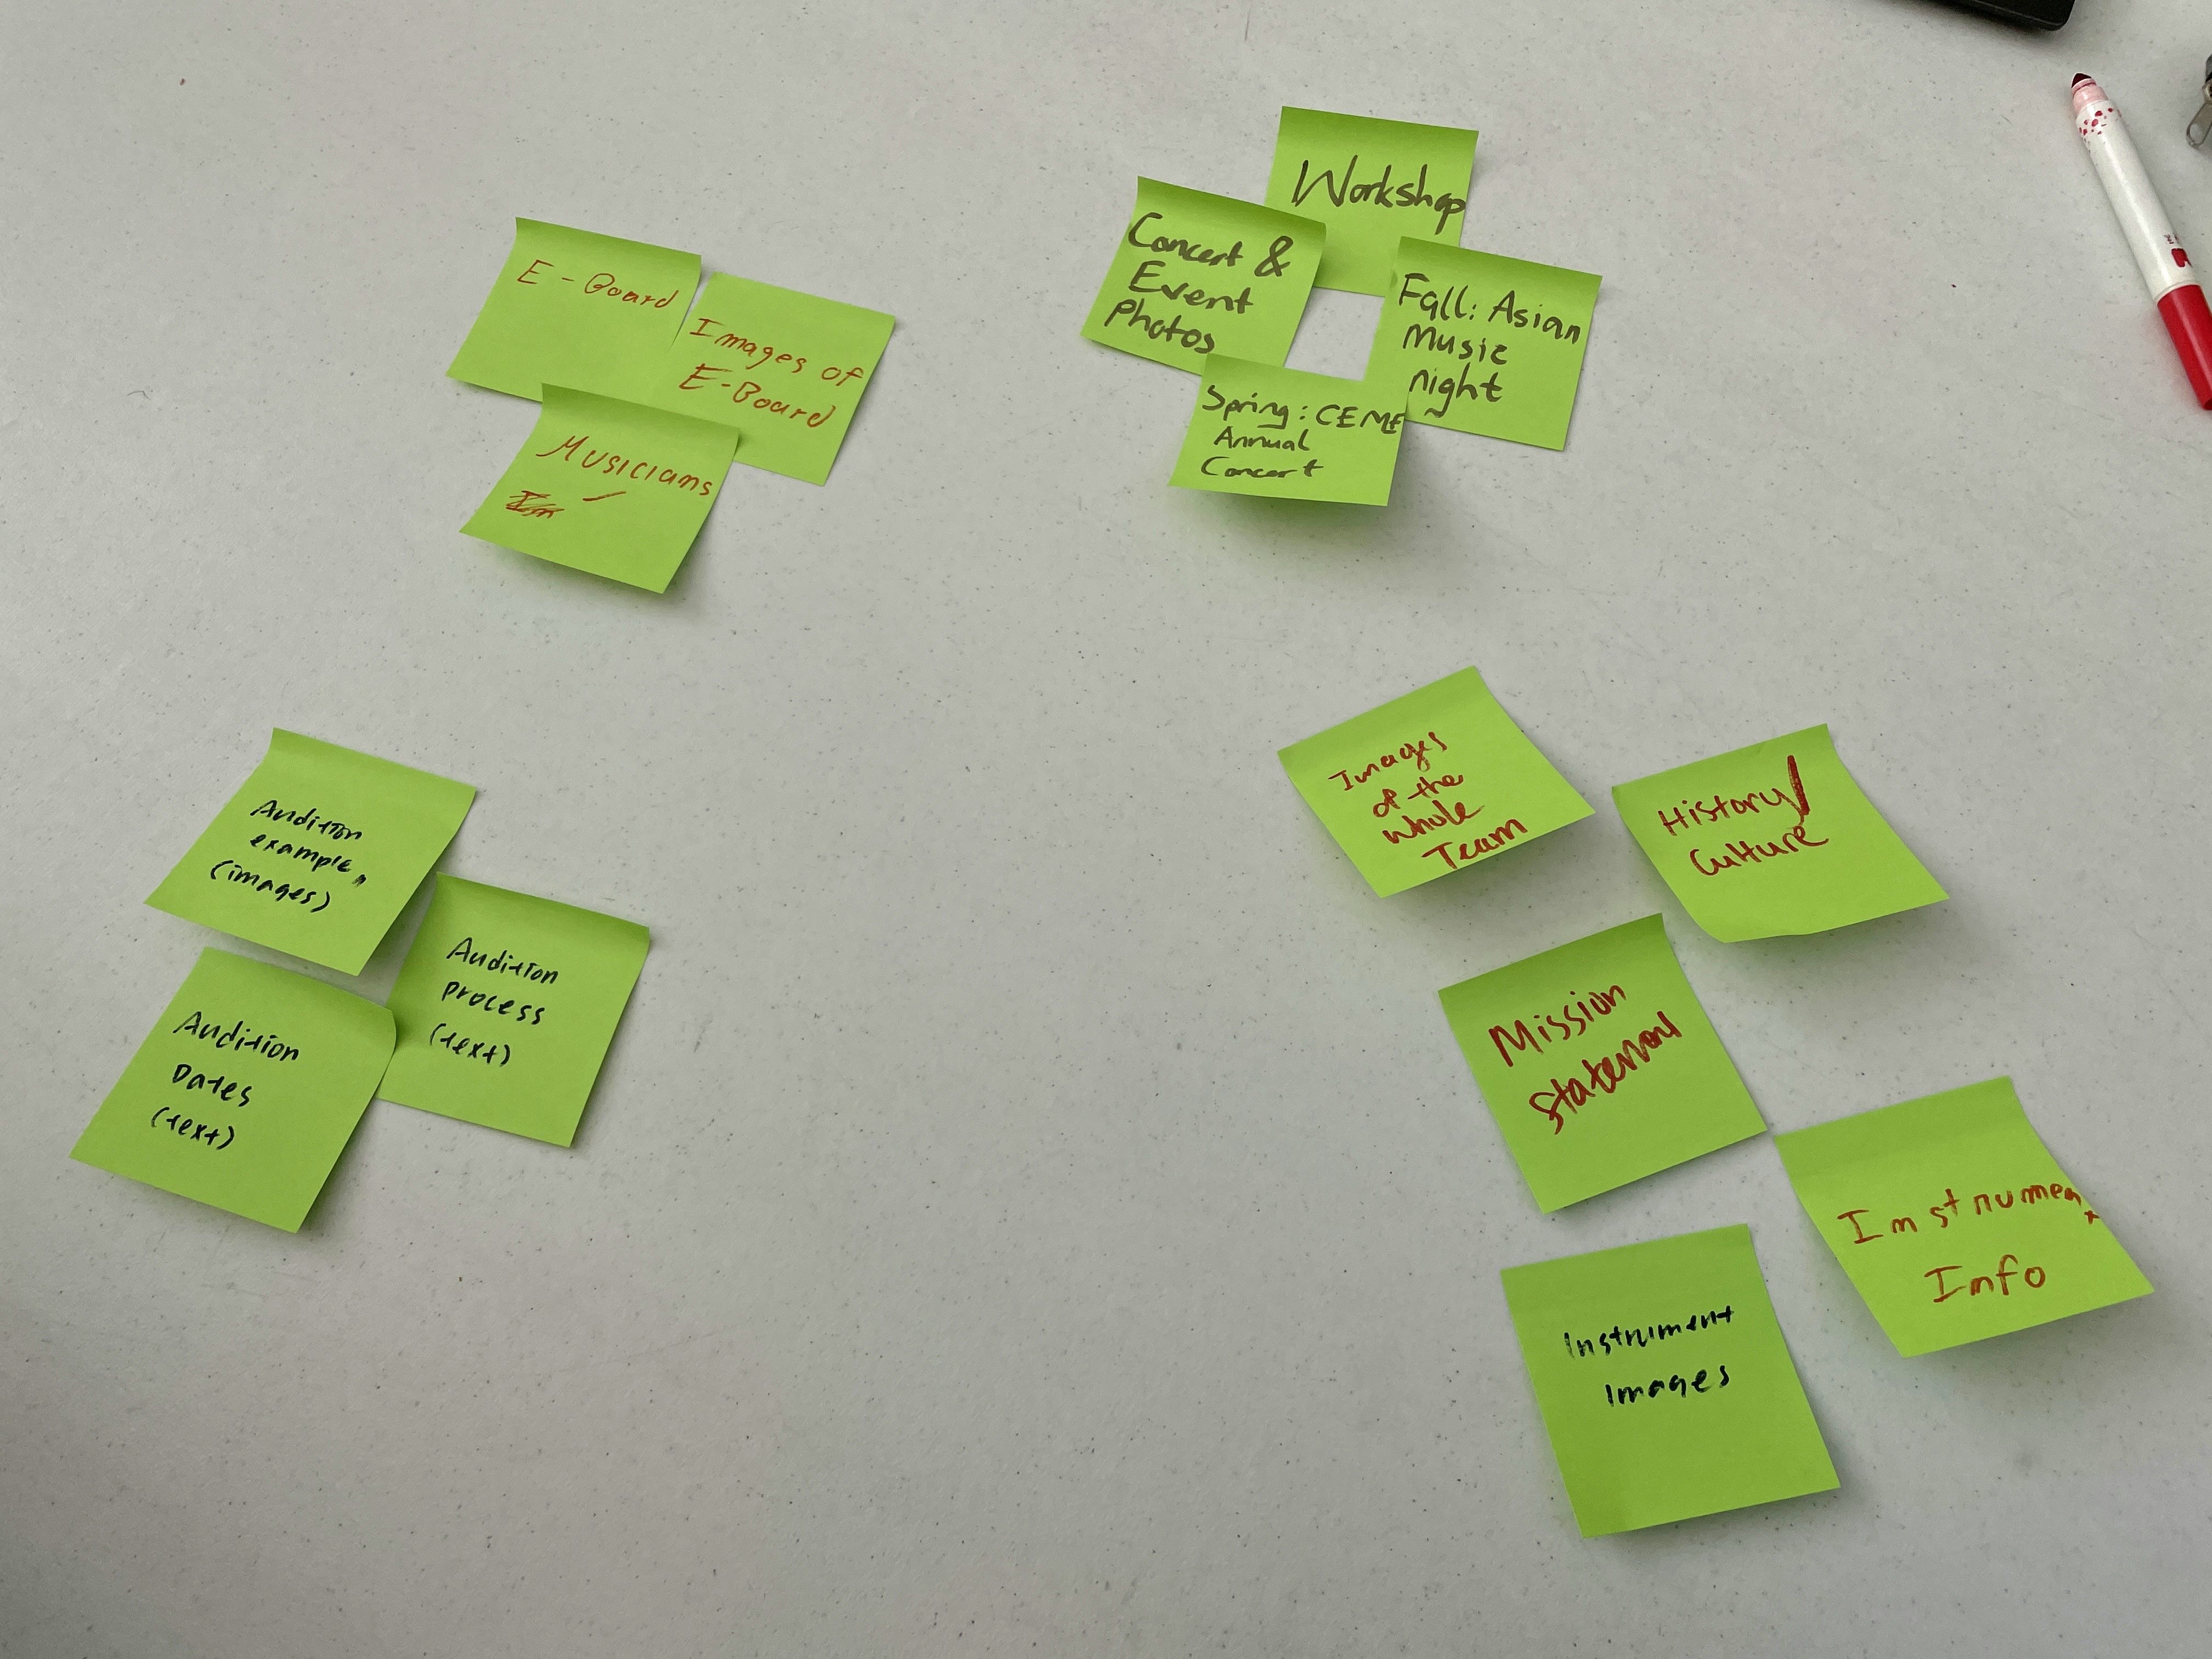 E-Board
Images of
E-Board
Musicians
Workshop
Concert &
Event
Photos
Fall: Asian
Music
night
Spring: CEME
Annual
Concert
Audition
example
(images)
Audition
process
(text)
Audition
Dates
(text)
Images
of the
whole
Team
History/
Culture
Mission
Statement
Instrument
Info
Instrument
Images